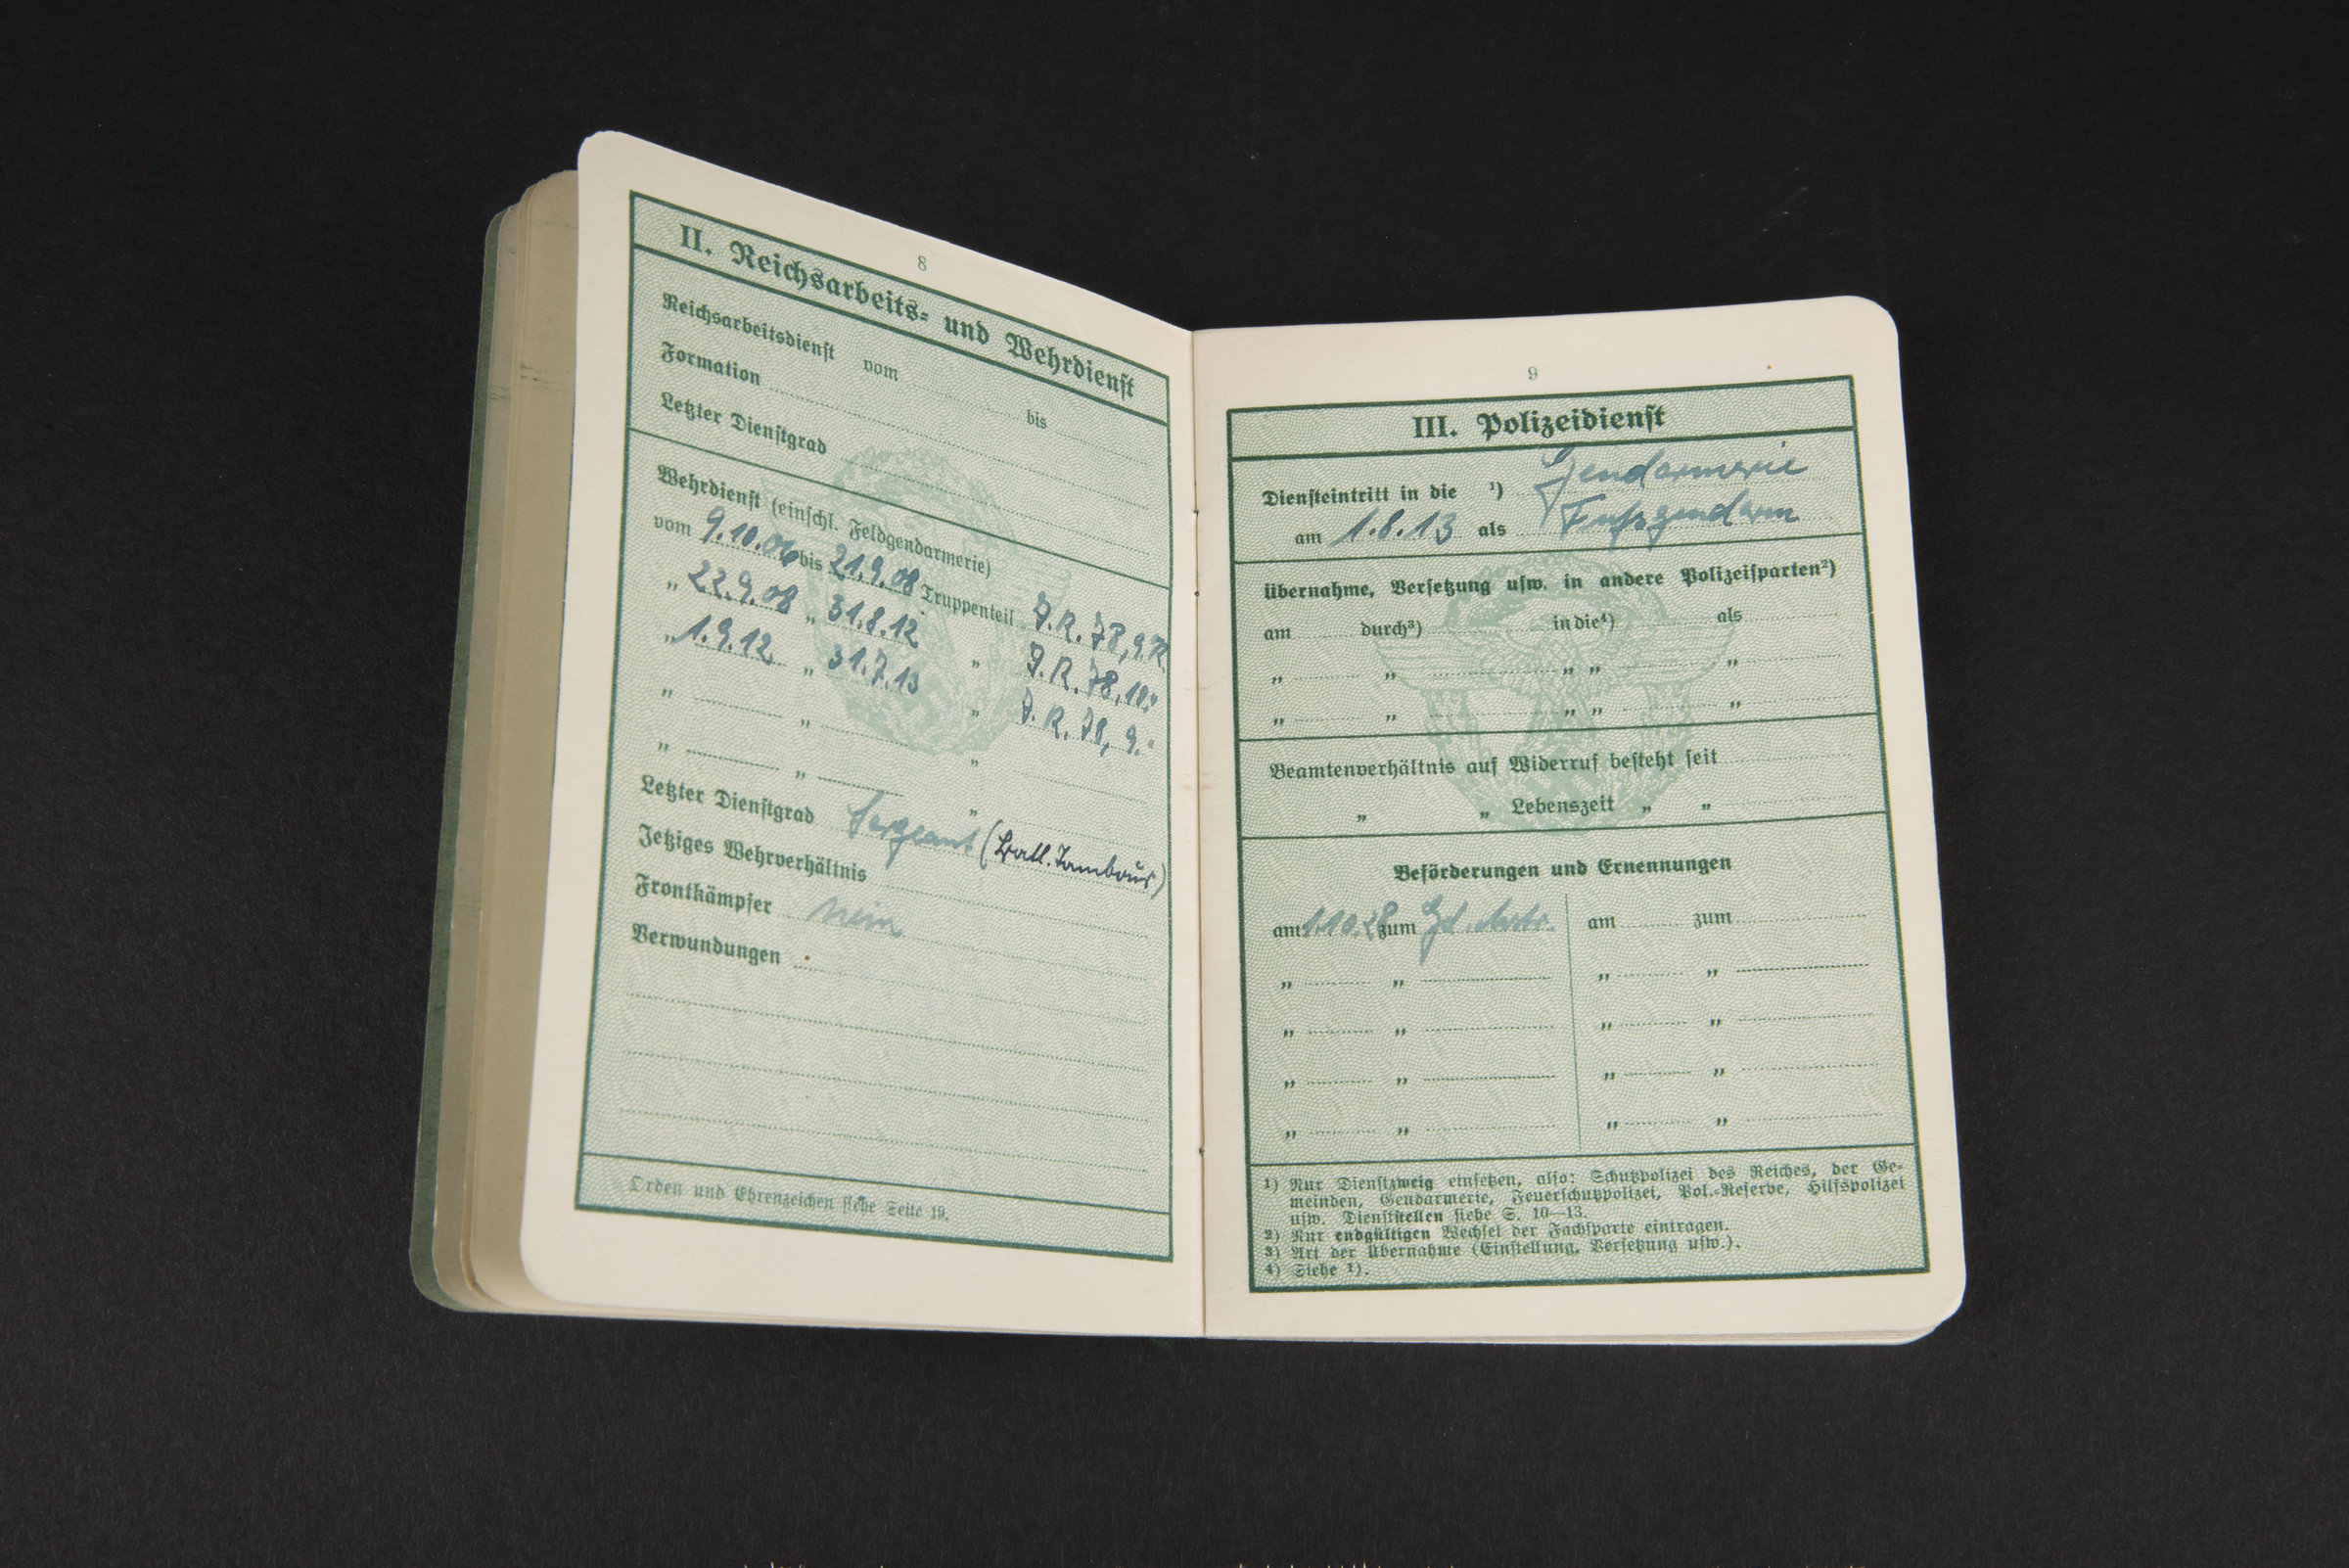 8
II. Reichsarbeits- und Wehrdienst
Reichsarbeitsdienst vom bis
Formation
Letzter Dienstgrad
Wehrdienst (einschl. Feldgendarmerie)
vom 9.10.06 bis 21.9.08 Truppenteil J.R. 78, 9.K.
„ 22.9.08 „ 31.8.12 „ J.R. 78, 10.„
„ 1.9.12 „ 31.7.13 „ J.R. 78, 9.„
„ „ „
„ „ „
Letzter Dienstgrad Sergeant (Batl. Tambour)
Jetziges Wehrverhältnis
Frontkämpfer nein
Verwundungen
Orden und Ehrenzeichen siehe Seite 19.
9
III. Polizeidienst
Diensteintritt in die ¹) Gendarmerie
am 1.8.13 als Fußgendarm
Übernahme, Versetzung usw. in andere Polizeisparten²)
am durch³) in die⁴) als
„ „ „ „ „
„ „ „ „ „
Beamtenverhältnis auf Widerruf besteht seit
„ „ Lebenszeit „ „
Beförderungen und Ernennungen
am 1.10.28 zum Gd. am zum
„ „ „ „
„ „ „ „
„ „ „ „
„ „ „ „
¹) Nur Dienstzweig einsetzen, also: Schutzpolizei des Reiches, der Ge-
meinden, Gendarmerie, Feuerschutzpolizei, Pol.-Reserve, Hilfspolizei
usw. Dienststellen siehe S. 10—13.
²) Nur endgültigen Wechsel der Fachsparte eintragen.
³) Art der Übernahme (Einstellung, Versetzung usw.).
⁴) Siehe ¹).